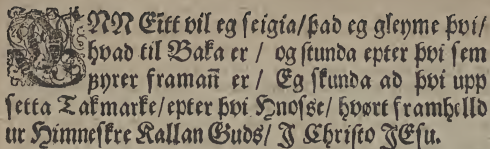 ENN Eitt vil eg seigia/ þad eg gleyme þvi/
hvad til Baka er / og stunda epter þvi sem
fyrer framañ er / Eg skunda ad þvi upp
setta Takmarke/ epter þvi Hnosse/ hvørt framhelld
ur Himneskre Kallan Guds/ J Christo JEsu.